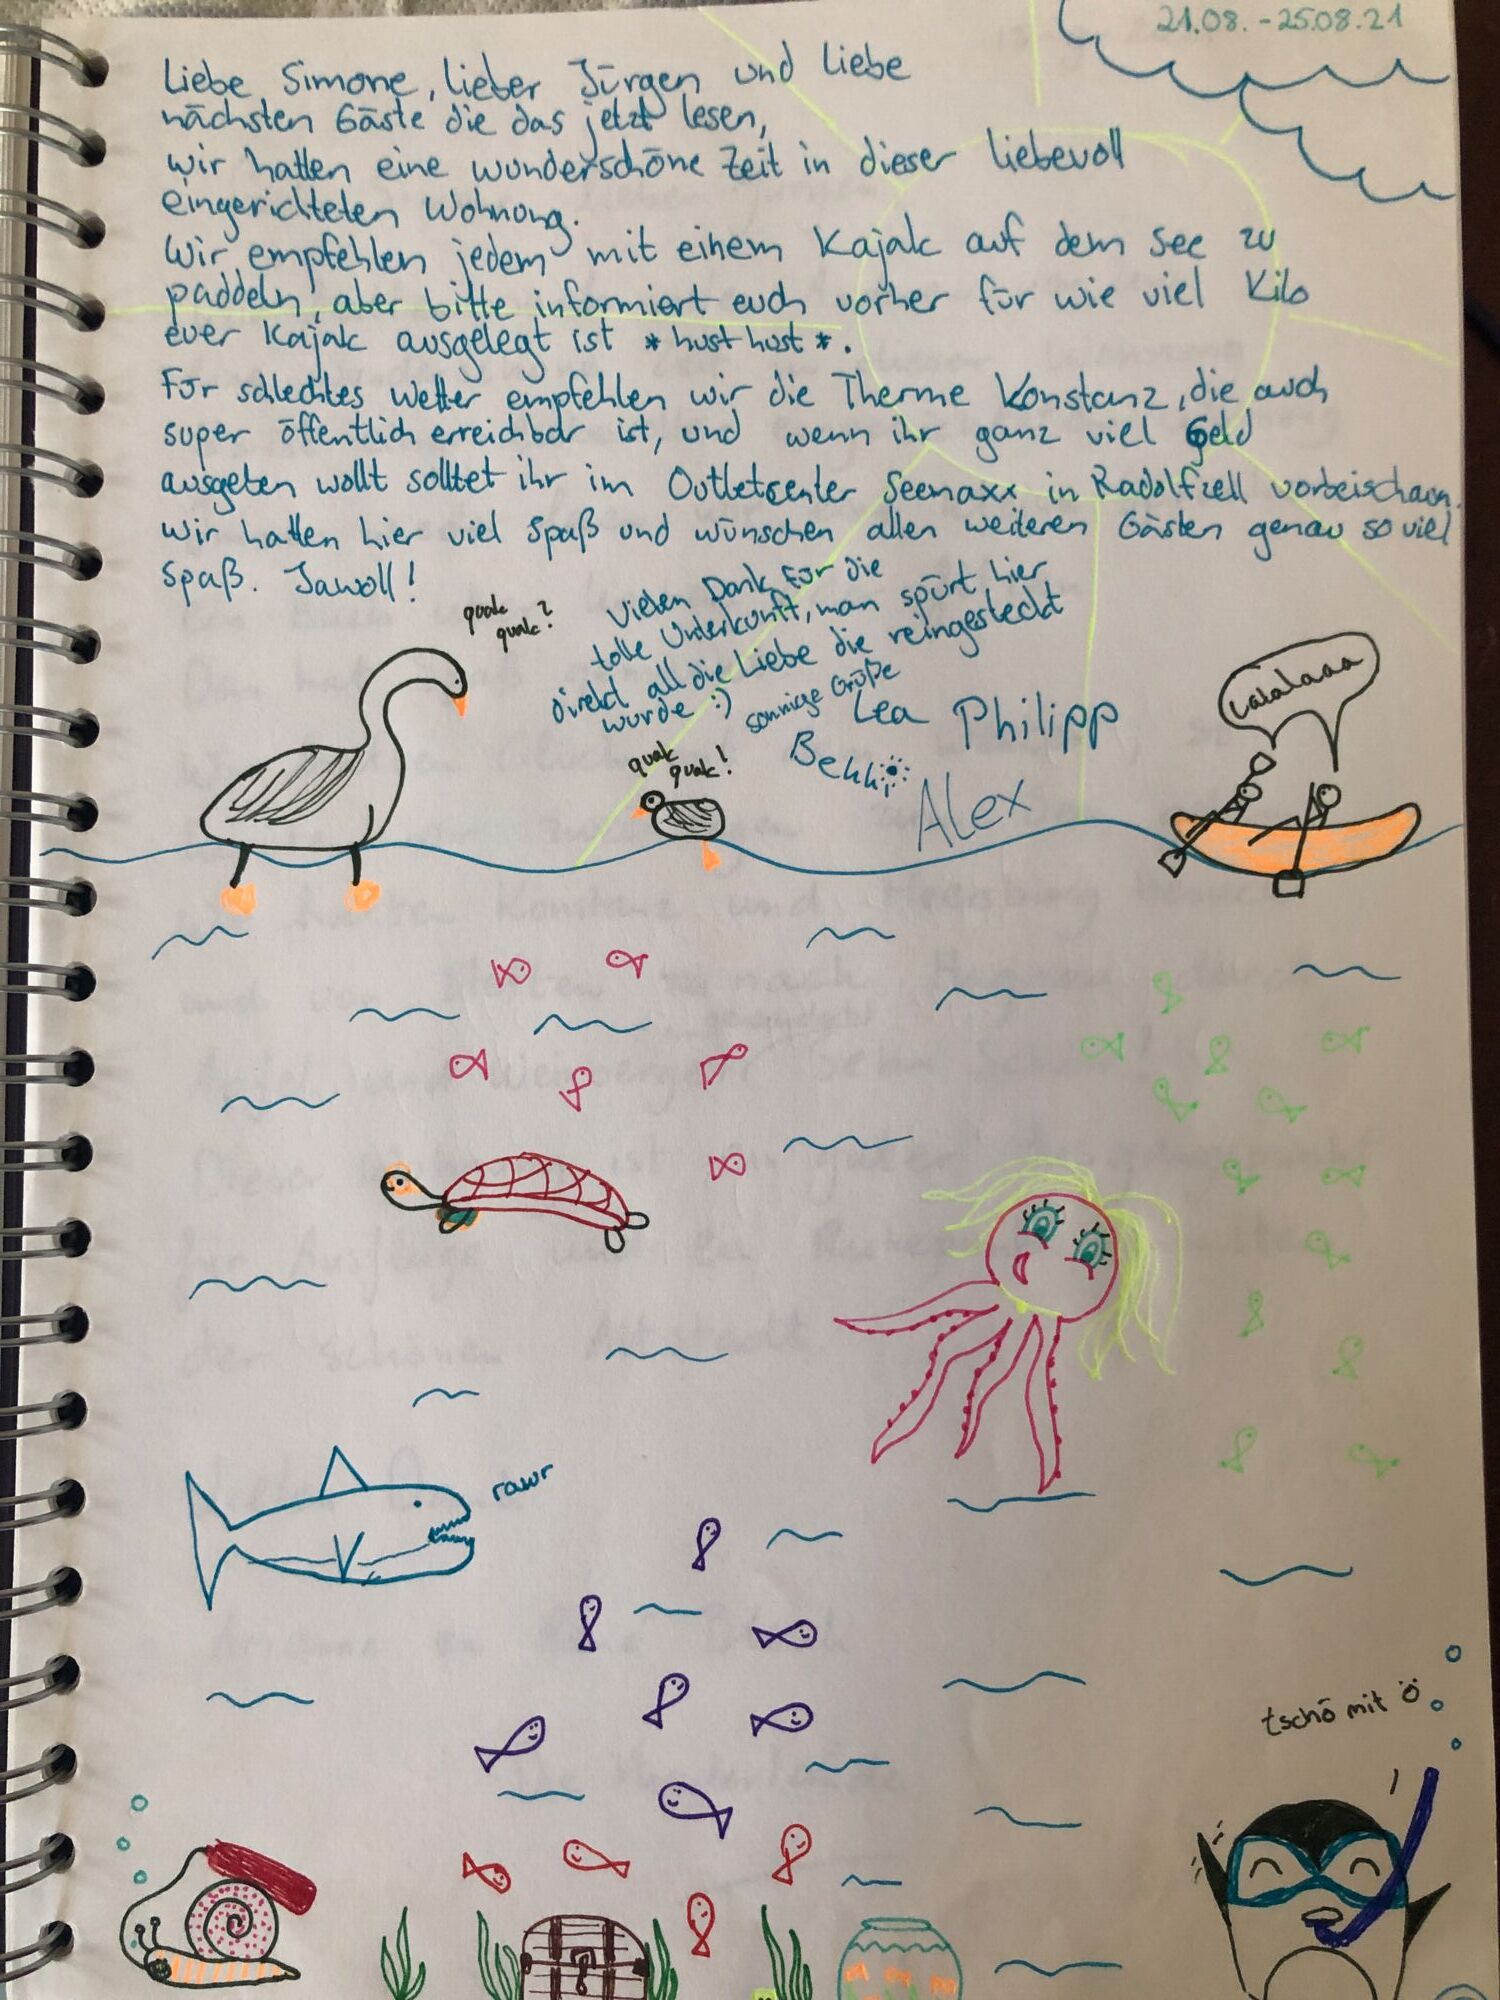 21.08. - 25.08.21
Liebe Simone, lieber Jürgen und liebe
nächsten Gäste die das jetzt lesen,
wir hatten eine wunderschöne Zeit in dieser liebevoll
eingerichteten Wohnung.
Wir empfehlen jedem mit einem Kajak auf dem See zu
paddeln, aber bitte informiert euch vorher für wie viel Kilo
euer Kajak ausgelegt ist *hust hust*.
Für schlechtes Wetter empfehlen wir die Therme Konstanz, die auch
super öffentlich erreichbar ist, und wenn ihr ganz viel Geld
ausgeben wollt solltet ihr im Outletcenter Seemaxx in Radolfzell vorbeischaun.
Wir hatten hier viel Spaß und wünschen allen weiteren Gästen genau so viel
Spaß. Jawoll!
Vielen Dank für die
tolle Unterkunft, man spürt hier
direkt all die Liebe die reingesteckt
wurde :)
sonnige Grüße
Lea Philipp
Bekki
Alex
quak
quak?
quak
quak!
Lalalaaaa
rawr
tschö mit ö